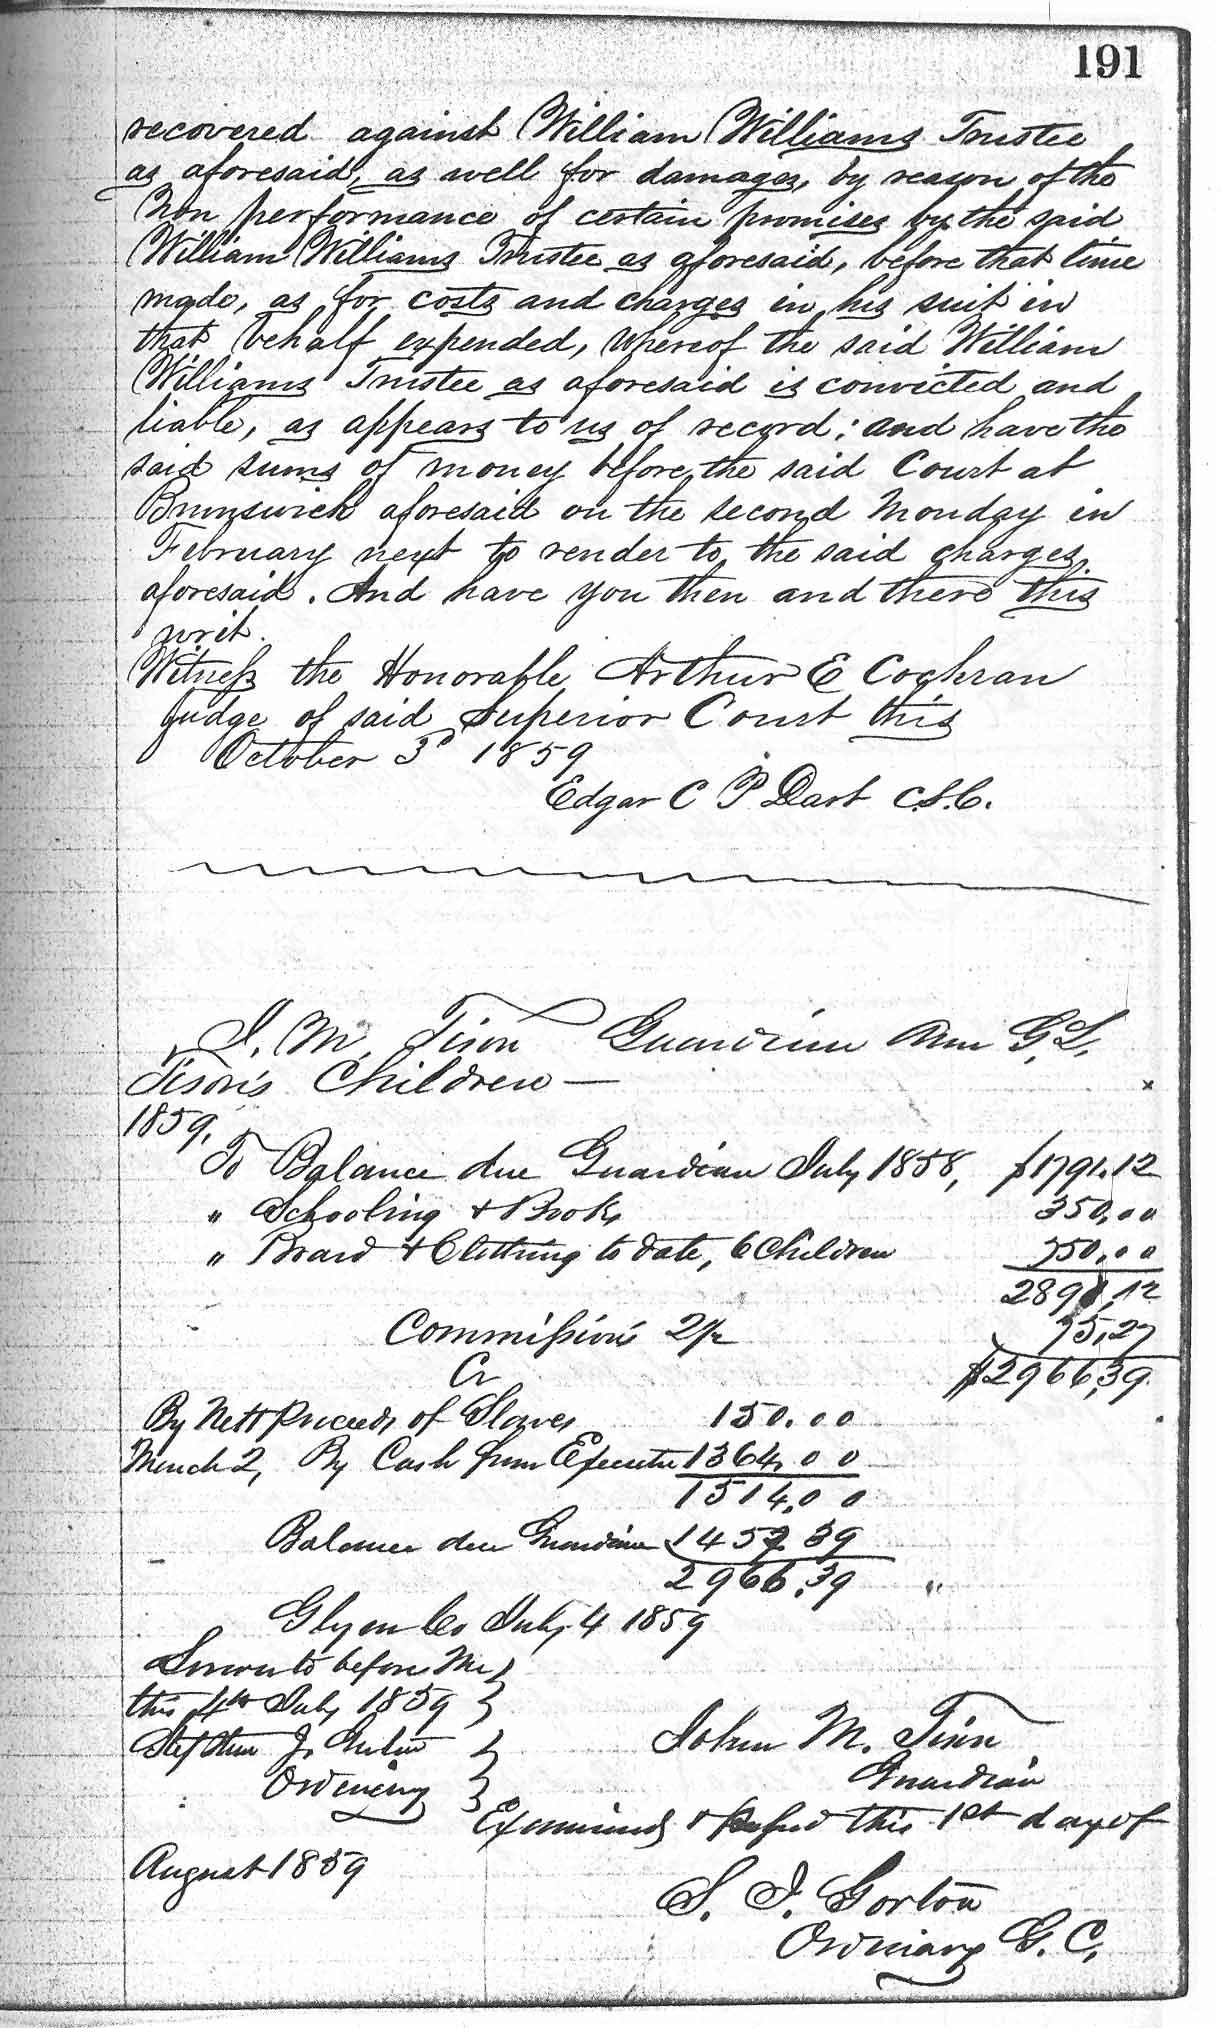 191
recovered against William Williams Trustee
as aforesaid, as well for damages, by reason of the
Non performance of certain promises by the said
William Williams Trustee as aforesaid, before that time
made, as for costs and charges in his suit in
that behalf expended, whereof the said William
Williams Trustee as aforesaid is convicted and
liable, as appears to us of record; and have the
said sums of money before the said Court at
Brunswick aforesaid on the second Monday in
February next to render to the said charges
aforesaid. And have you then and there this
writ.
Witness the Honorable Arthur E Cochran
Judge of said Superior Court this
October 3d 1859
Edgar C P Dart C.S.C.
J. M. Tison Guardian Ann G. L.
Tison's Children — x
1859,
To Balance due Guardian July 1858, $1791.12
" Schooling & Books 350,00
" Board & Clothing to date, 6 Children 750,00
2891,12
Commissions 75,27
Cr $2966,39
By Nett proceeds of Slaves 150.00
March 2, By Cash from Executor 1364,00
1514,00
Balance due Guardian 1452 39
2966,39 "
Glynn Co July 4 1859
Sworn to before me }
this 4th July 1859 }
Stephen J. Gorton }
Ordinary }
John M. Tison
Guardian
Examined & passed this 1st day of
August 1859
S. J. Gorton
Ordinary G. C.